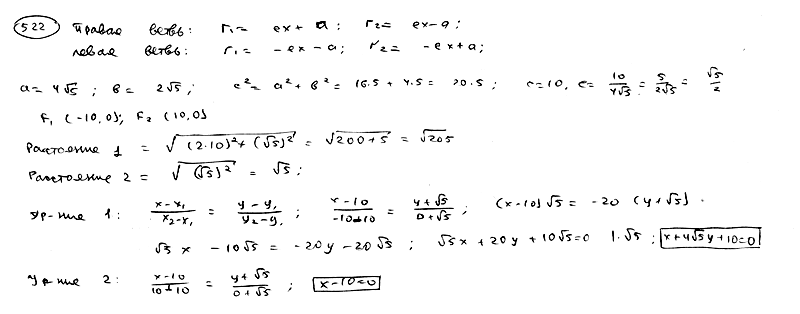 522 Правая ветвь: r₁= ex+a; r₂= ex-a;
левая ветвь: r₁= -ex-a; r₂= -ex+a;
a=4√5; в= 2√5; c²= a²+в²= 16.5+4.5= 20.5; c=10, e= 10/4√5 = 5/2√5 = √5/2
F₁ (-10,0); F₂ (10,0)
Расстояние 1 = √((2·10)²+(√5)²) = √(200+5) = √205
Расстояние 2 = √((√5)²) = √5;
Ур-ние 1: (x-x₁)/(x₂-x₁) = (y-y₁)/(y₂-y₁); (x-10)/(-10-10) = (y+√5)/(0+√5); (x-10)√5 = -20 (y+√5).
√5 x - 10√5 = -20y-20√5; √5x+20y+10√5=0 |·√5; x+4√5y+10=0
Ур-ние 2: (x-10)/(10-10) = (y+√5)/(0+√5); x-10=0